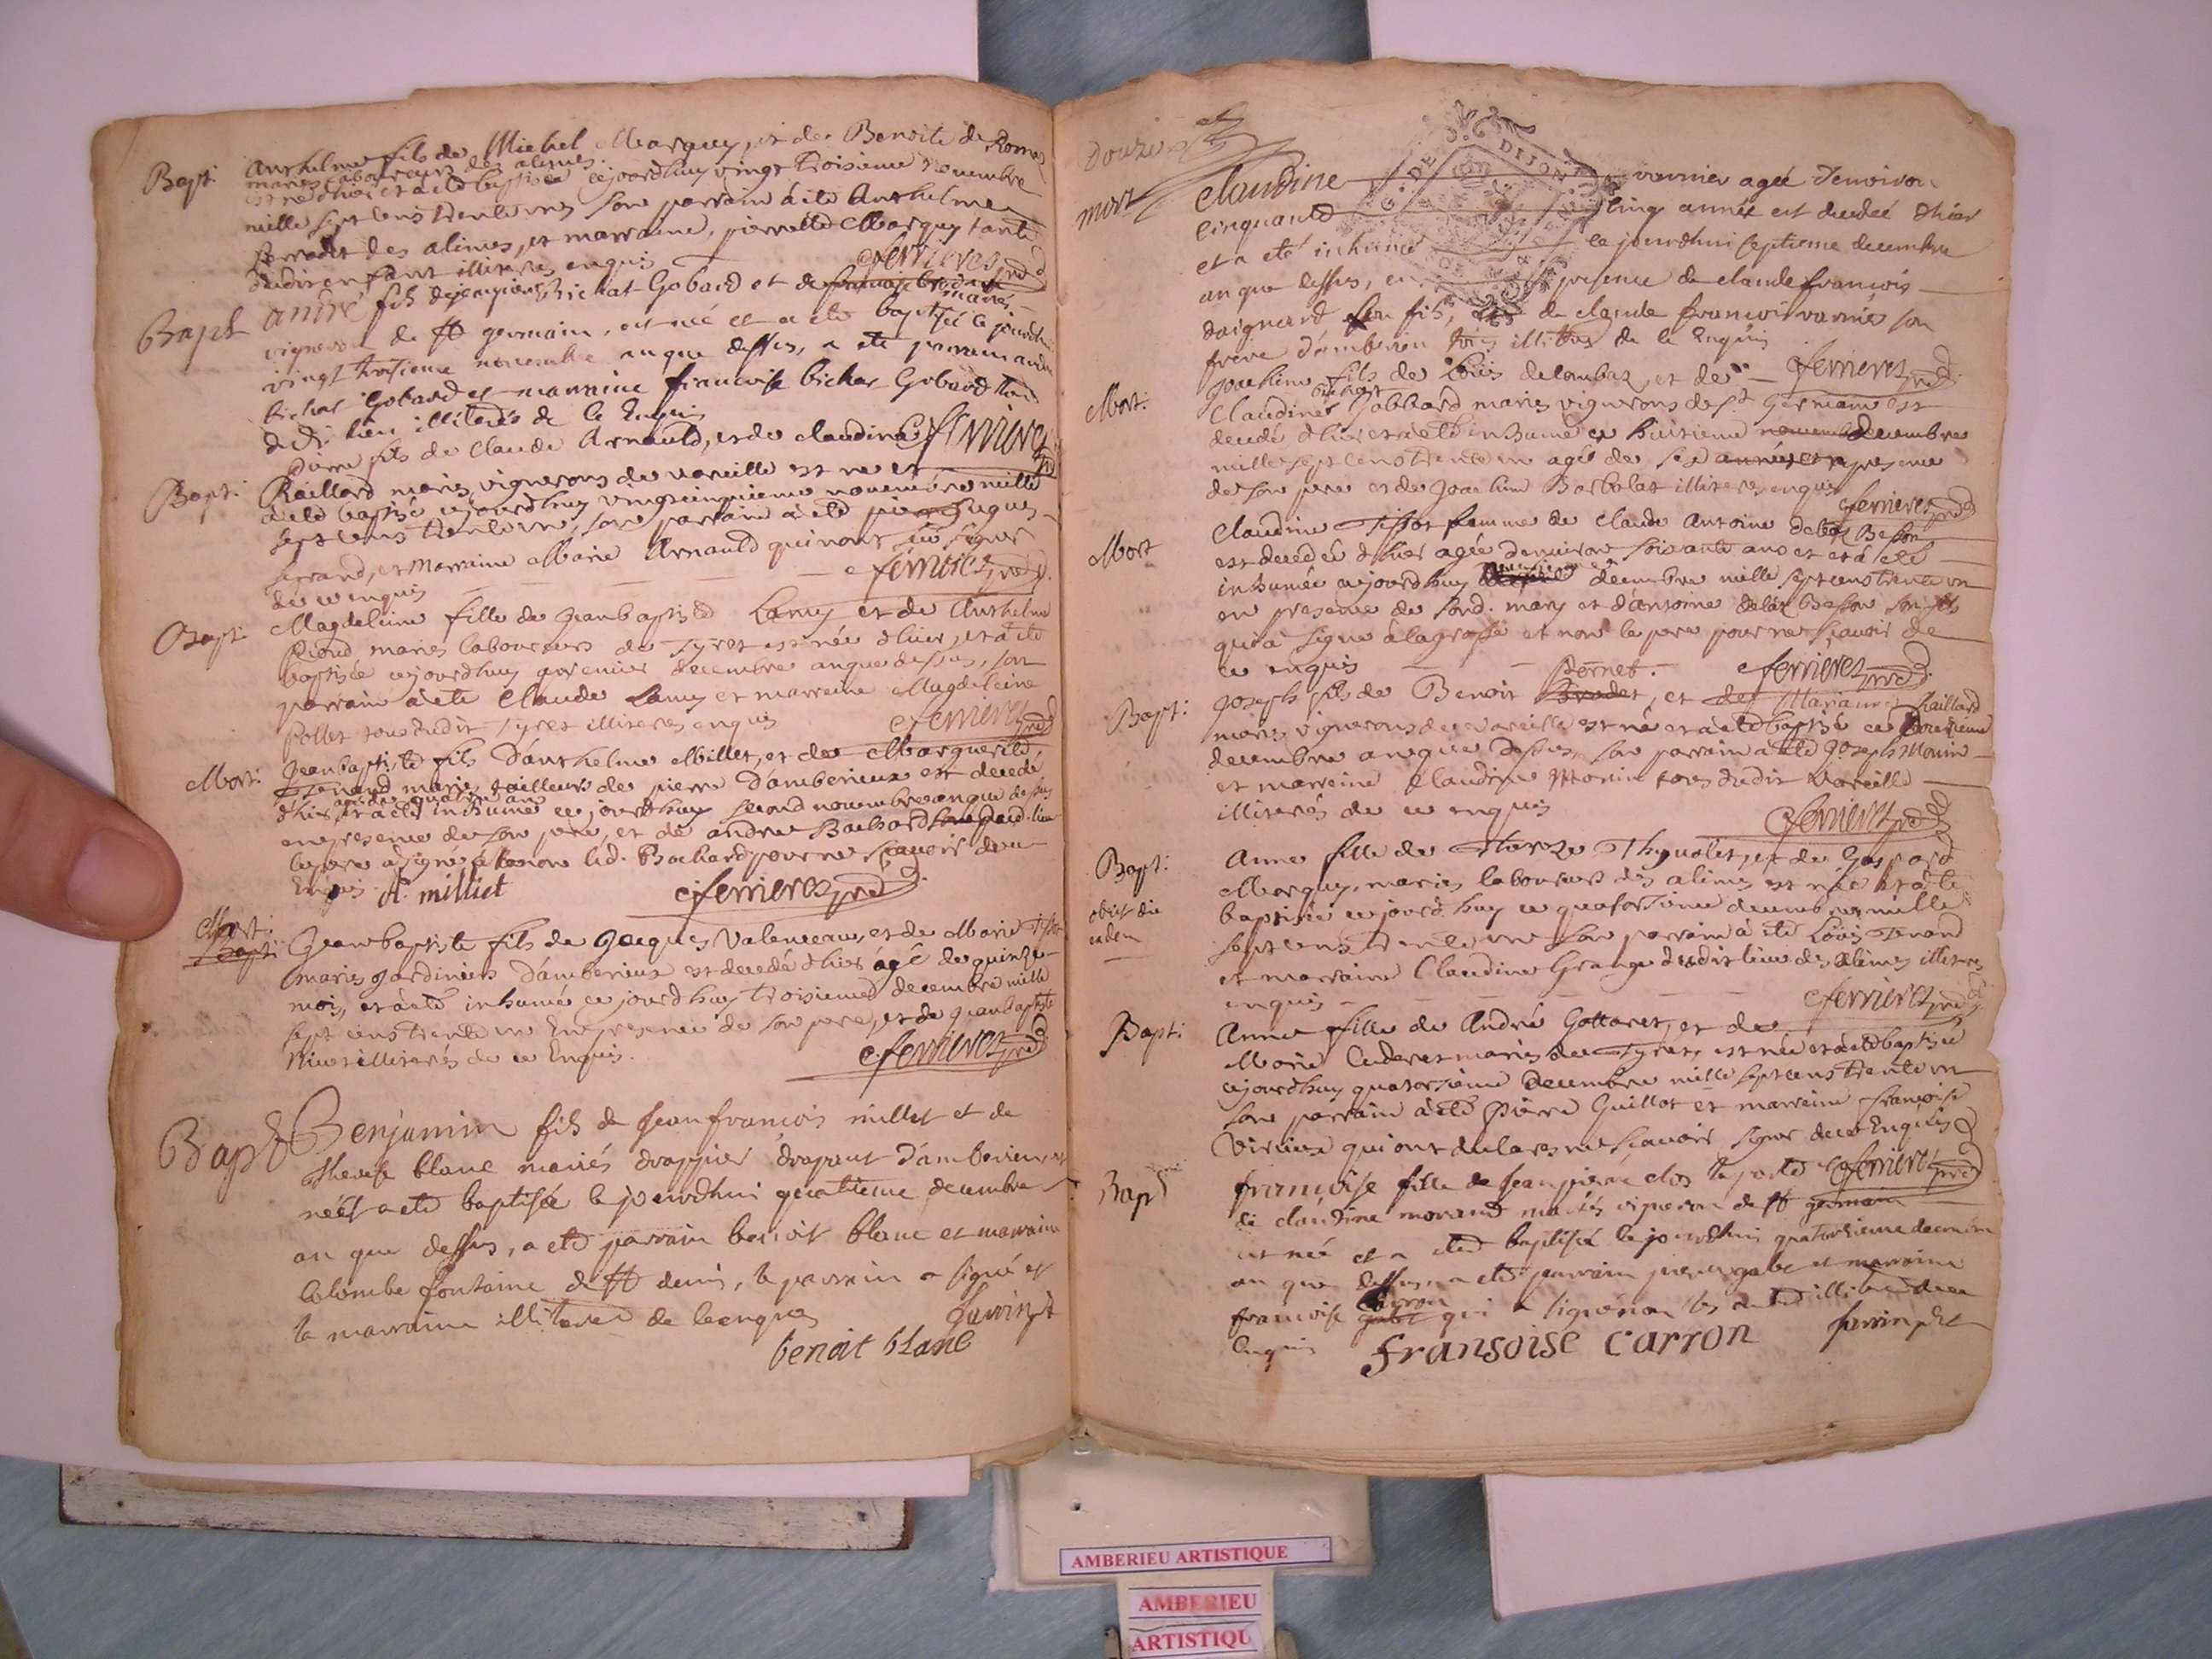 Bapt: anthelme fils de Michel Marguy, et de Benoite de Romas
maries laboureurs des alimes.
est né d'hier et a été baptisé cejourdhuy vingt troisieme novembre
mille sept cens trente un son parrain a été Anthelme
des alimes, et marraine, pierrette Marguy tante
dudit enfant illiterés enquis ferrieres
Bapt andré fils de bichat Gobard et de
mariés
vigneron de st germain, est né et a eté baptisé ce jourdhui
vingt troisieme novembre an que dessus, a eté parrain andré
bichat Gobard et marraine francoise bichat Gobard tous
dudi lieu illiterés de ce Enquis ferrieres
Bapt: Pierre fils de Claude Arnauld, et de claudine
Raillard maries, vignerons de vareille est né et
a été baptisé cejourdhuy vingtcinquieme novembre mille
sept cens trente un, son parrain a été hugues
ferrand, et marraine Marie Arnauld qui n'ont sçu signer
de ce enquis ferrieres
Bapt: Magdeleine fille de Jean baptiste Lamy et de Anthelme
Riond maries laboureurs de Tyret est née d'hier, et a été
baptisée cejourdhuy premier decembre an que dessus, son
parrain a été Claude Lamy et marraine Magdeleine
Pollet tous dudit Tyret illiteres enquis ferrieres
Mort: Jeanbaptiste fils d'anthelme Millet, et de Marguerite
maries tailleurs de pierre d'amberieux est decedé
d'hier, et a été inhumé ce jourdhuy second novembre an que dessus
en presence de son pere, et de andré Bachard
le pere a signé et non led. Bachard pour ne sçavoir de ce
Enquis A. milliet ferrieres
Mort:
Bapt: Jeanbaptiste fils de Jacques Valenceau, et de Marie
maries jardiniers d'amberieux est decedé d'hier âgé de quinze
mois, et a été inhumé ce jourdhuy troisieme decembre mille
sept cens trente un En presence de son pere, et de Jeanbaptiste
illiterés de ce Enquis. ferrieres
Bapt Benjamin fils de Jean francois millet et de
therese blanc mariés drappier drapant d'amberieu, est
né et a eté baptisé ce jourdhui quatrieme decembre
an que dessus, a eté parrain benoit blanc et marraine
Colombe fontaine de st denis, le parrain a signé et
la marraine illiterée de ce enquis
benoit blanc
G. DE DIJON
mort Claudine vernier agée d'environ
cinquante cinq année est decedée d'hier
et a eté inhumé ce jourdhui septieme decembre
an que dessus, en presence de claude francois
son fils, de claude francois varnier son
frere d'amberieu illiteres de ce Enquis ferrieres
Mort: Joachim fils de Loüis delombaz, et de
bichat
Claudine Gobbard maries vignerons de st Germain est
decedé d'hier et a été inhumé ce huitieme decembre
mille sept cens trente un agé de presence
de son pere et de Joachim Barbolat illiteres enquis ferrieres
Mort Claudine Tissot femme de Claude Antoine Besson
est decedée d'hier agée d'environ soixante ans et a été
inhumée cejourdhuy decembre mille sept cens trente un
en presence de sond. mary et d'antoine Besson son fils
qui a signé a la grosse et non le pere pour ne sçavoir de
ce enquis ferrieres
Bapt: Joseph fils de Benoit Pornet, et de Mariane Raillard
maries vignerons de vareille est né et a été baptisé ce
decembre an que dessus, son parrain a été Joseph Monin
et marraine Claudine Monin tous dudit Vareille
illiterés de ce enquis ferrieres
Bapt: Anne fille de Thereze Thynolet, et de Gaspard
obiit die Marguy, maries laboureurs des alimes est née et a été
eadem baptisée ce jourdhuy ce quatorzieme decembre mille
sept cens trente un son parrain a été Loüis Tenand
et marraine Claudine Grange dudit lieu des Alimes illiteres
enquis ferrieres
Bapt: Anne fille de André Gottaret, et de
Marie Cuderet maries de Tyret, est née et a été baptisée
cejourdhuy quatorzieme decembre mille sept cens trente un
son parrain a été Pierre Guillot et marraine francoise
qui ont declares ne sçavoir signer de ce Enquis
Bapt francoise fille de Jean pierre clos la porte ferrieres
de claudine morand mariés vigneron de st germain
est née et a eté baptisée ce jourdhui quatorzieme decembre
an que dessus, a eté parrain pierre gabet et marraine
carron
francoise gabet qui a signé non les autres illiterés de ce
Enquis fransoise carron
AMBERIEU ARTISTIQUE
AMBERIEU
ARTISTIQU